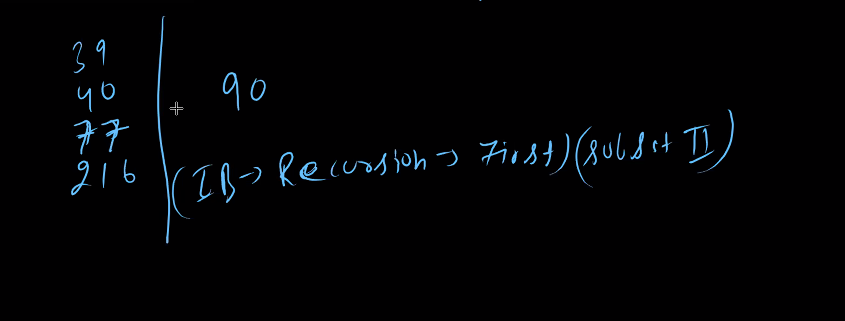 39
40
77
216
90
(IB→ Recursion→ First) (subset II)